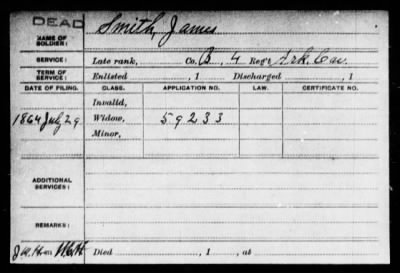 DEAD
NAME OF SOLDIER: Smith, James
SERVICE: Late rank, Co. B, 4 Reg't Ark. Cav.
TERM OF SERVICE: Enlisted , 1 Discharged , 1
DATE OF FILING. CLASS. APPLICATION NO. LAW. CERTIFICATE NO.
Invalid,
1864 July 29 Widow, 59233
Minor,
ADDITIONAL SERVICES:
REMARKS:
Died , 1 , at